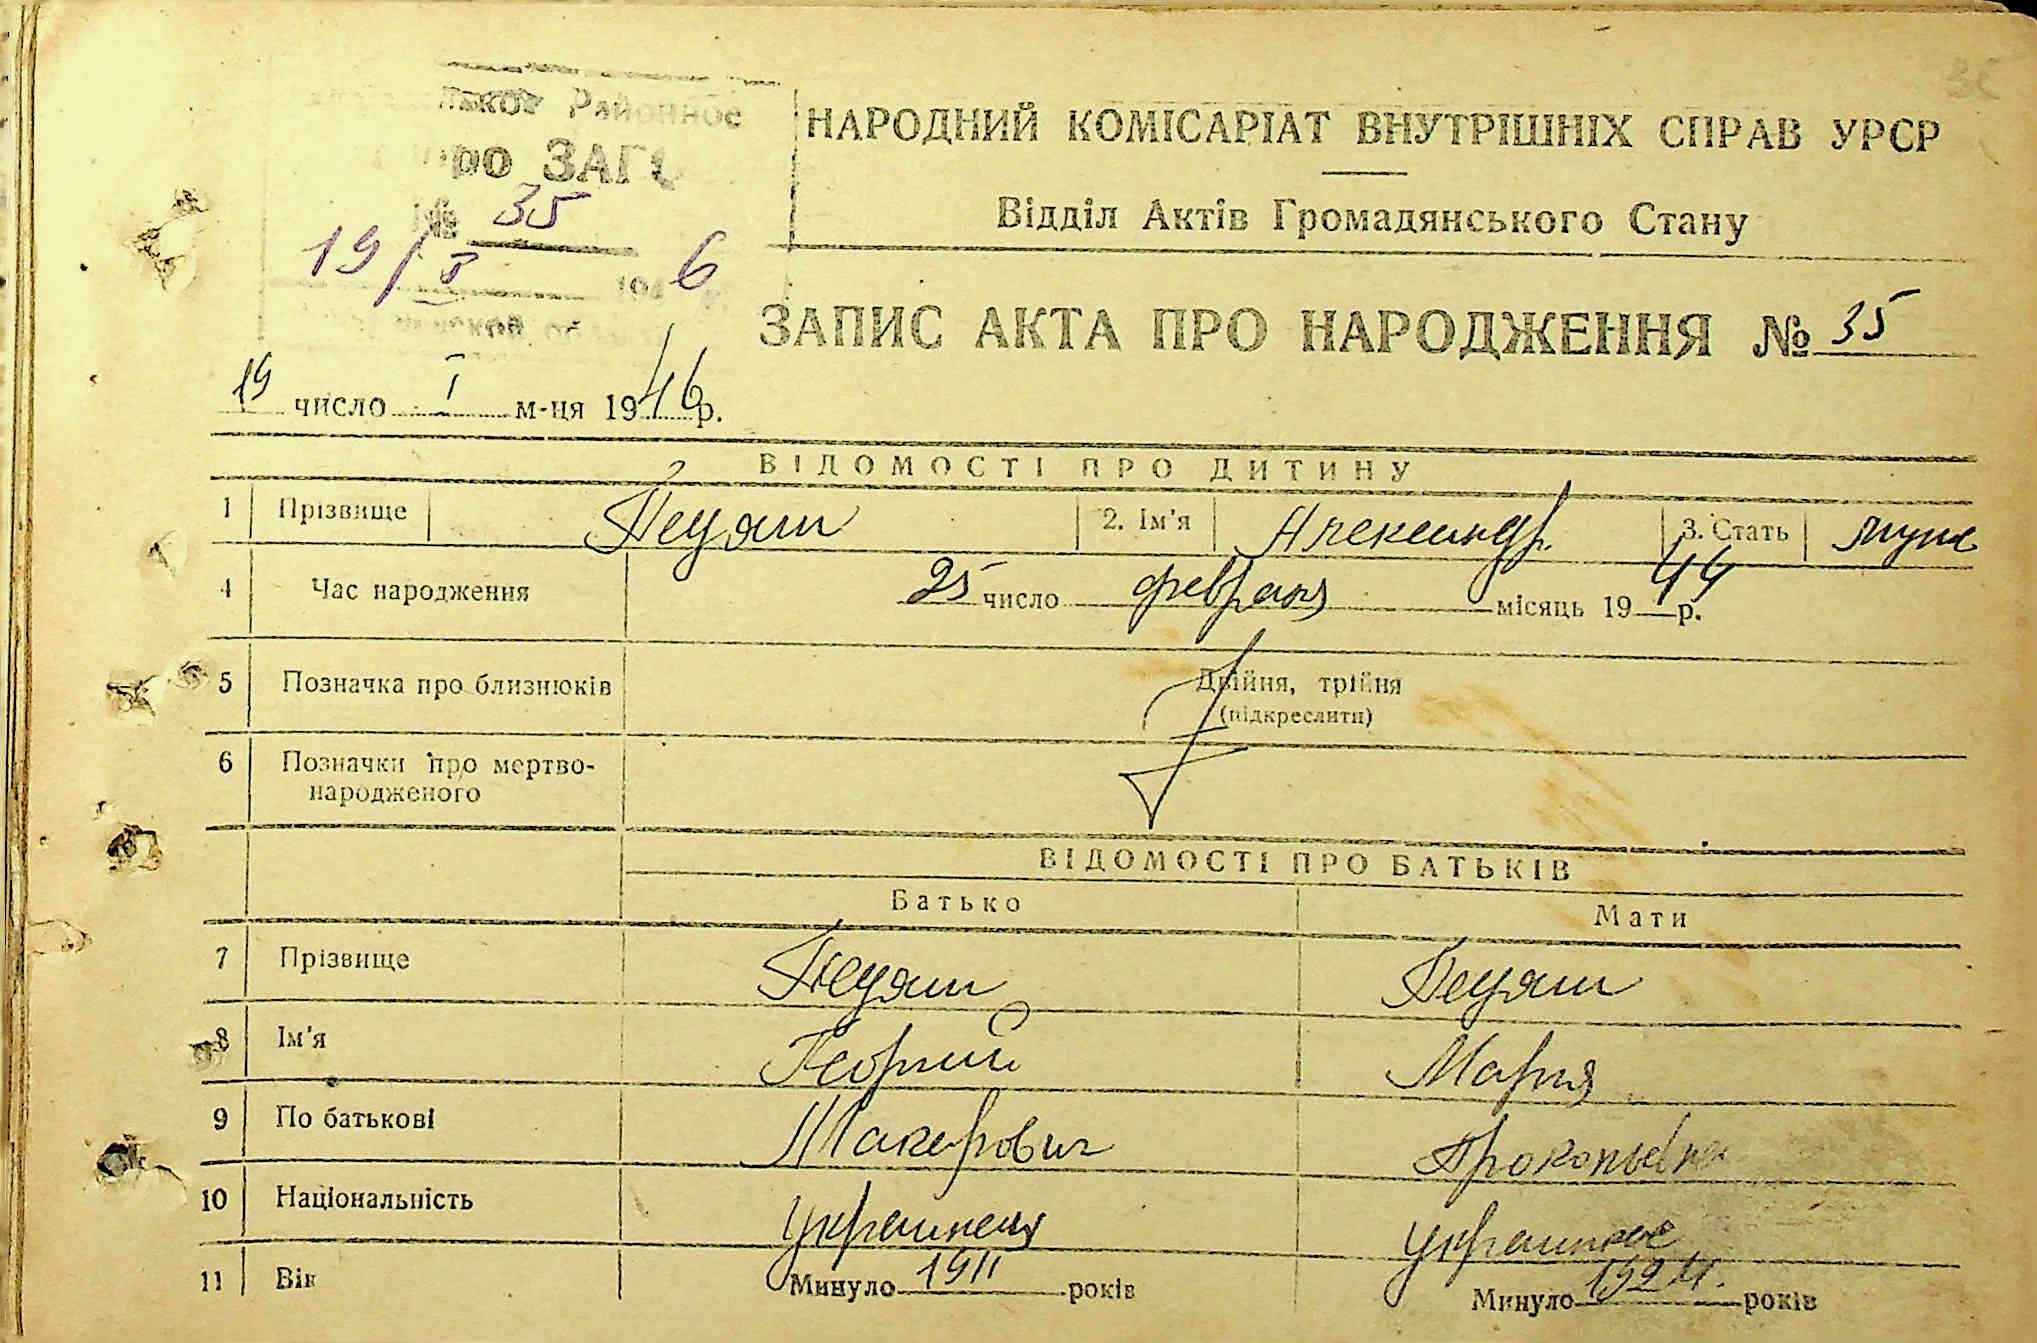 Районное
ЗАГС
№ 35
19/I 1946 р.
НАРОДНИЙ КОМІСАРІАТ ВНУТРІШНІХ СПРАВ УРСР
Відділ Актів Громадянського Стану
ЗАПИС АКТА ПРО НАРОДЖЕННЯ № 35
19 число I м-ця 1946 р.
ВІДОМОСТІ ПРО ДИТИНУ
1 Прізвище Пецяш 2. Ім'я Александр. 3. Стать муж
4 Час народження 25 число февраля місяць 1944 р.
5 Позначка про близнюків Двійня, трійня
(підкреслити)
6 Позначки про мертво-
народженого
ВІДОМОСТІ ПРО БАТЬКІВ
Батько Мати
7 Прізвище Пецяш Пецяш
8 Ім'я Георгий Мария
9 По батькові Макарович Прокопьевна
10 Національність Украинец Украинка
11 Вік Минуло 1911 років Минуло 1924 років